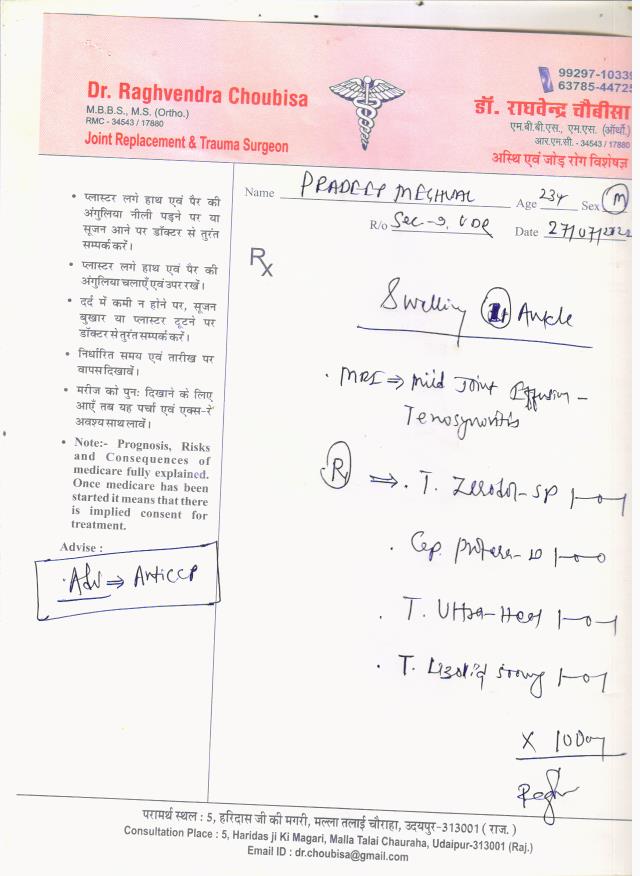 Dr. Raghvendra Choubisa
M.B.B.S., M.S. (Ortho.)
RMC - 34543 / 17880
Joint Replacement & Trauma Surgeon
99297-1033
63785-4472
डॉ. राघवेन्द्र चौबीसा
एम.बी.बी.एस., एम.एस. (ऑर्थो.)
आर.एम.सी. - 34543 / 17880
अस्थि एवं जोड़ रोग विशेषज्ञ
Name PRADEEP MEGHWAL Age 23Y Sex M
R/o Sec-9, UDR Date 27/07/
• प्लास्टर लगे हाथ एवं पैर की
अंगुलिया नीली पड़ने पर या
सूजन आने पर डॉक्टर से तुरंत
सम्पर्क करें।
• प्लास्टर लगे हाथ एवं पैर की
अंगुलिया चलाएँ एवं उपर रखें।
• दर्द में कमी न होने पर, सूजन
बुखार या प्लास्टर टूटने पर
डॉक्टर से तुरंत सम्पर्क करें।
• निर्धारित समय एवं तारीख पर
वापस दिखावें।
• मरीज को पुन: दिखाने के लिए
आएँ तब यह पर्चा एवं एक्स-रे
अवश्य साथ लावें।
• Note:- Prognosis, Risks
and Consequences of
medicare fully explained.
Once medicare has been
started it means that there
is implied consent for
treatment.
Advise :
Adv ⇒ AntiCCP
Rx
Swelling Ankle
• MRI ⇒ Mild Joint Effusion -
Tenosynovitis
R ⇒ • T. Zerodol-SP 1-0-1
• Cap. 1-0-0
• T. 1-0-1
• T. 1-0-1
X 10 Day
परामर्थ स्थल : 5, हरिदास जी की मगरी, मल्ला तलाई चौराहा, उदयपुर-313001 ( राज. )
Consultation Place : 5, Haridas ji Ki Magari, Malla Talai Chauraha, Udaipur-313001 (Raj.)
Email ID : dr.choubisa@gmail.com